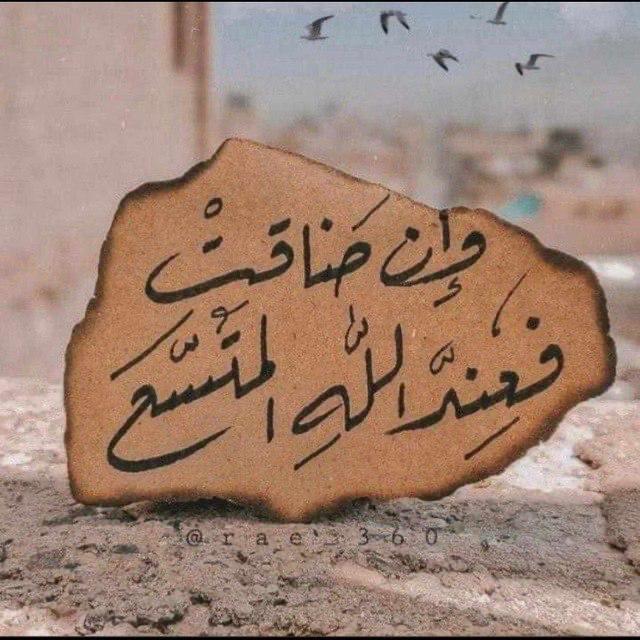 وإن ضاقتْ
فعندَ اللّهِ المتّسع
@rae_360